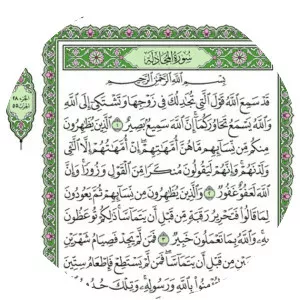 الجزء ٢٨
الحزب ٥٥
سُورَةُ المُجَادلَة
بِسْمِ اللَّهِ الرَّحْمَٰنِ الرَّحِيمِ
قَدْ سَمِعَ اللَّهُ قَوْلَ الَّتِي تُجَٰدِلُكَ فِي زَوْجِهَا وَتَشْتَكِي إِلَى اللَّهِ
وَاللَّهُ يَسْمَعُ تَحَاوُرَكُمَا إِنَّ اللَّهَ سَمِيعٌ بَصِيرٌ ١ الَّذِينَ يُظَٰهِرُونَ
مِنكُم مِّن نِّسَآئِهِم مَّا هُنَّ أُمَّهَٰتِهِمْ إِنْ أُمَّهَٰتُهُمْ إِلَّا الَّٰٓـِٔي
وَلَدْنَهُمْ وَإِنَّهُمْ لَيَقُولُونَ مُنكَرًا مِّنَ الْقَوْلِ وَزُورًا وَإِنَّ
اللَّهَ لَعَفُوٌّ غَفُورٌ ٢ وَالَّذِينَ يُظَٰهِرُونَ مِن نِّسَآئِهِمْ ثُمَّ يَعُودُونَ
لِمَا قَالُوا فَتَحْرِيرُ رَقَبَةٍ مِّن قَبْلِ أَن يَتَمَآسَّا ذَٰلِكُمْ تُوعَظُونَ
بِهِ وَاللَّهُ بِمَا تَعْمَلُونَ خَبِيرٌ ٣ فَمَن لَّمْ يَجِدْ فَصِيَامُ شَهْرَيْنِ
مِن قَبْلِ أَن يَتَمَآسَّا فَمَن لَّمْ يَسْتَطِعْ فَإِطْعَامُ سِتِّينَ
بِاللَّهِ وَرَسُولِهِ وَتِلْكَ